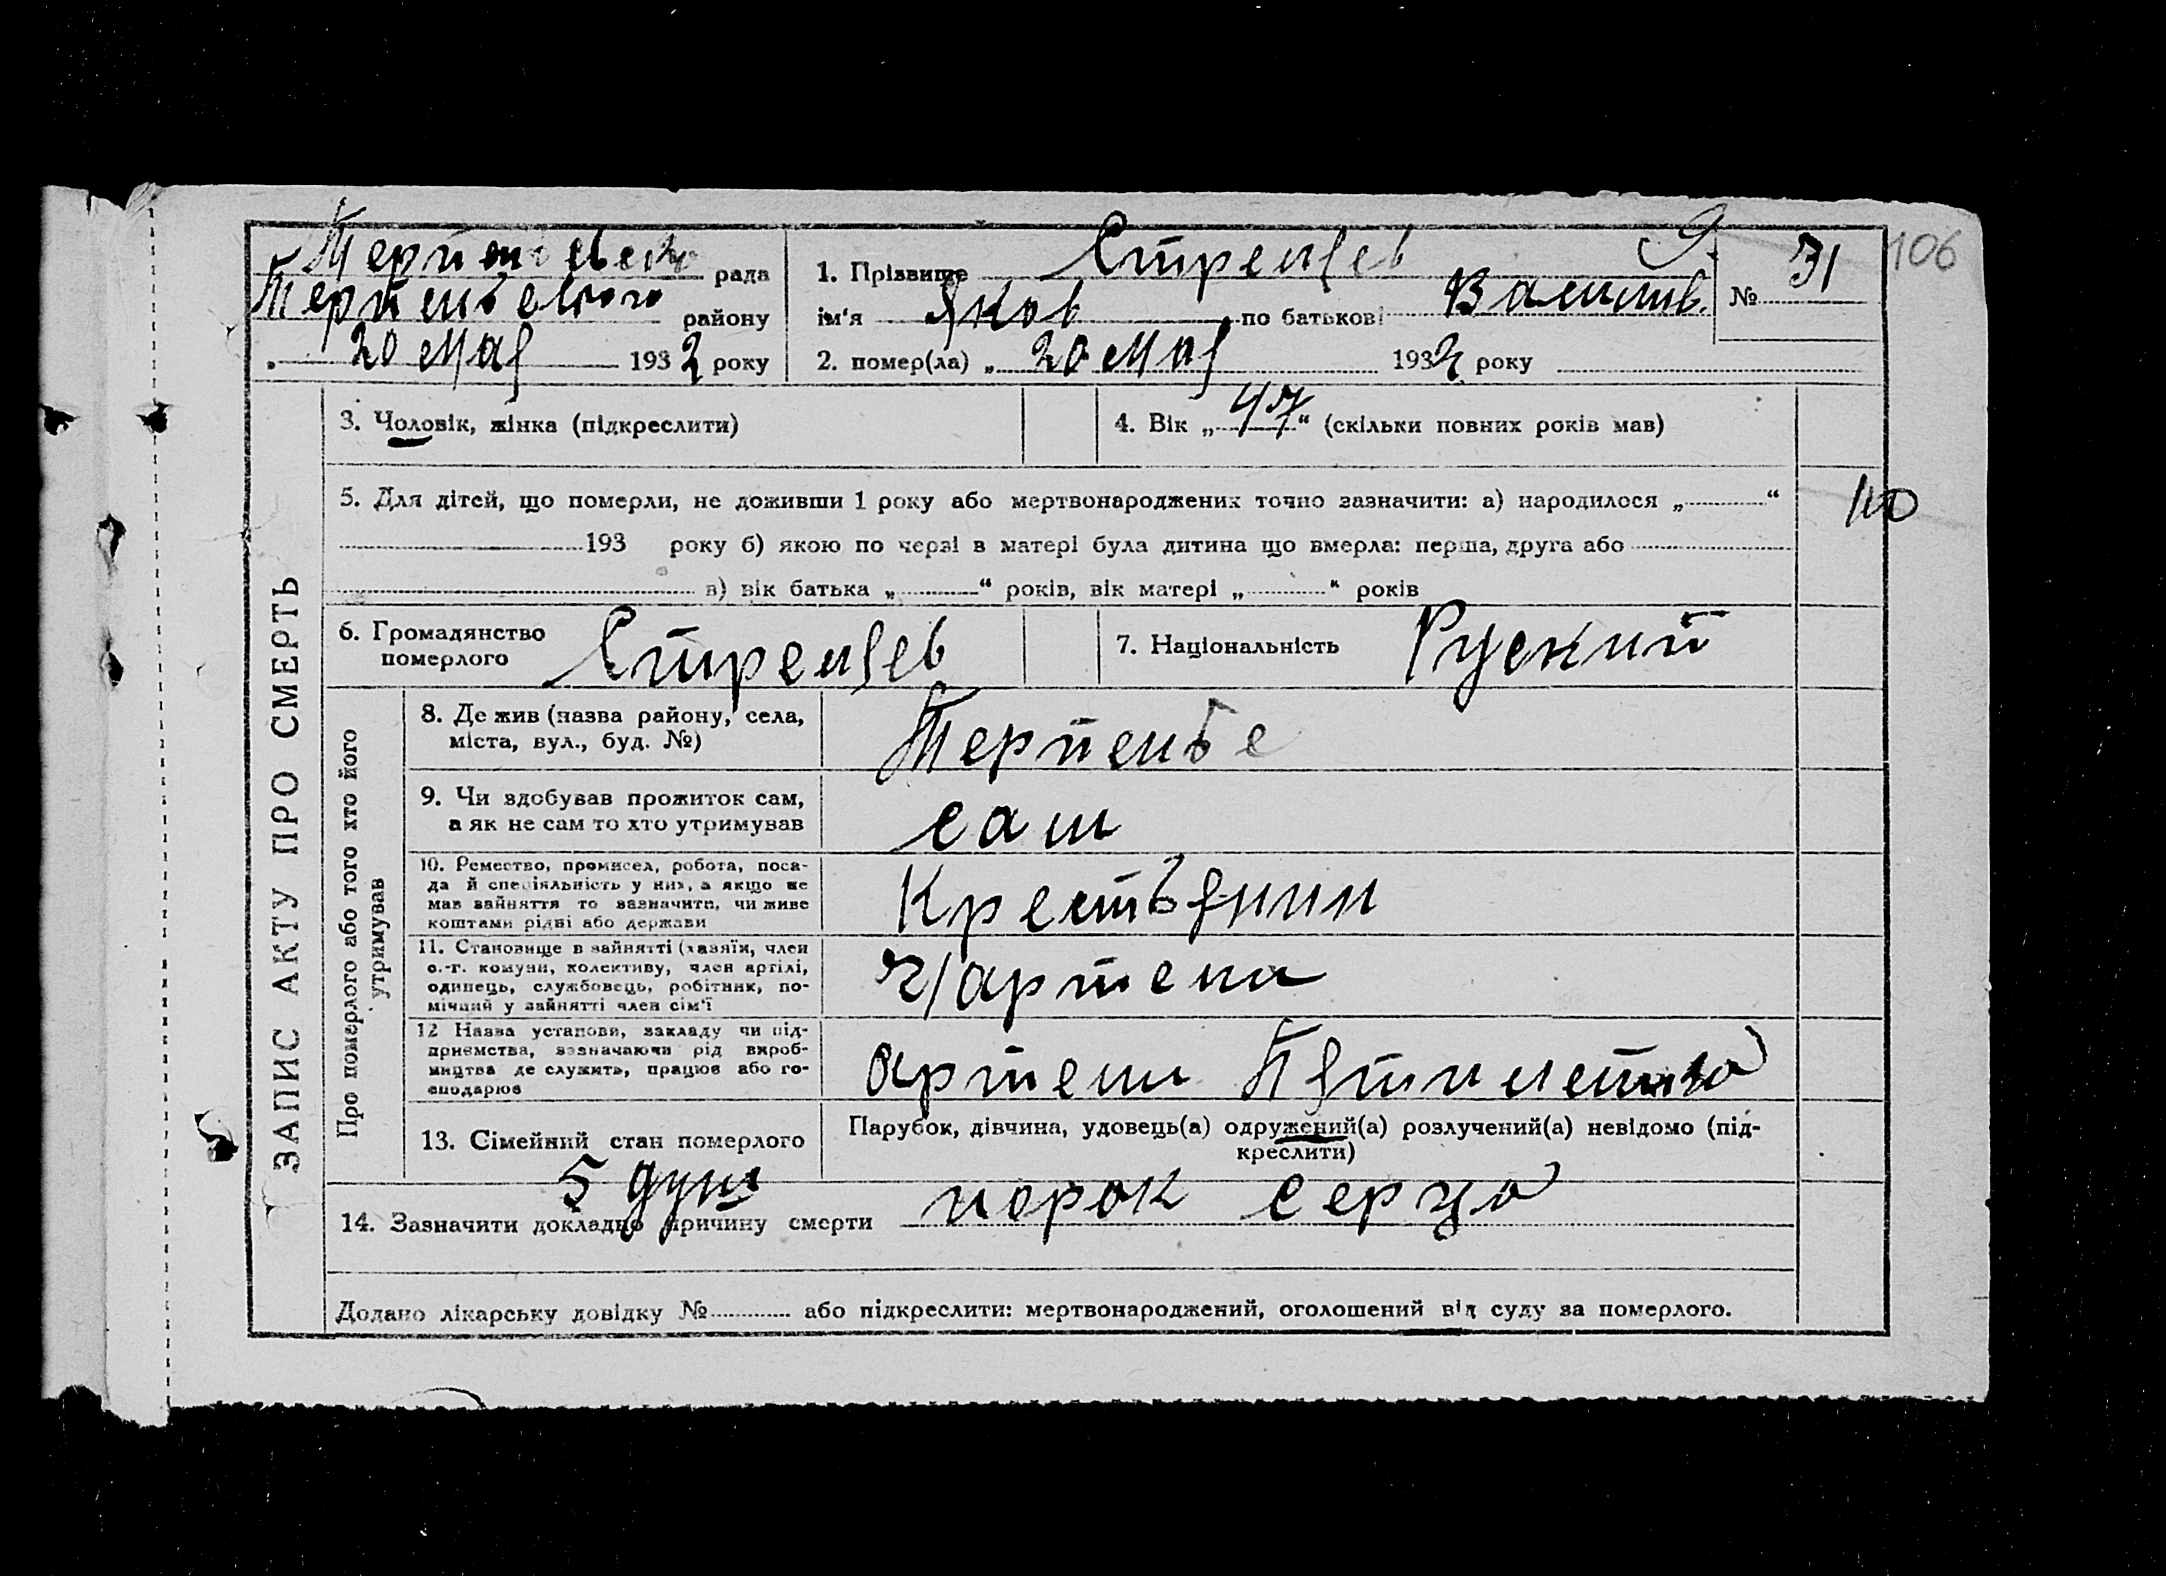 рада
району
20 мая 1932 року
1. Прізвище Стрельцев
ім'я Яков по батькові Васильев.
2. помер(ла) „ 20 мая 1932 року
№ 31
106
3. Чоловік, жінка (підкреслити)
4. Вік „ 47 “ (скільки повних років мав)
5. Для дітей, що померли, не доживши 1 року або мертвонароджених точно зазначити: а) народилося „ “
193 року б) якою по черзі в матері була дитина що вмерла: перша, друга або
в) вік батька „ “ років, вік матері „ “ років
ЗАПИС АКТУ ПРО СМЕРТЬ
6. Громадянство
померлого
7. Національність Руский
Про померлого або того хто його
утримував
8. Де жив (назва району, села,
міста, вул., буд. №)
Терпенье
9. Чи здобував прожиток сам,
а як не сам то хто утримував
сам
10. Ремество, промисел, робота, поса-
да й спеціяльність у них, а якщо не
мав зайняття то зазначити, чи живе
коштами рідні або держави
Крестьянин
11. Становище в зайнятті (хазяїн, член
с.-г. комуни, колективу, член артілі,
одинець, службовець, робітник, по-
мічний у зайнятті член сім'ї
ч/артела
12 Назва установи, закладу чи під-
приємства, зазначаючи рід вироб-
ництва де служить, працює або го-
сподарює
Артели
13. Сімейний стан померлого
Парубок, дівчина, удовець(а) одружений(а) розлучений(а) невідомо (під-
креслити)
5 душ
14. Зазначити докладно причину смерти порок серца
Додано лікарську довідку № або підкреслити: мертвонароджений, оголошений від суду за померлого.